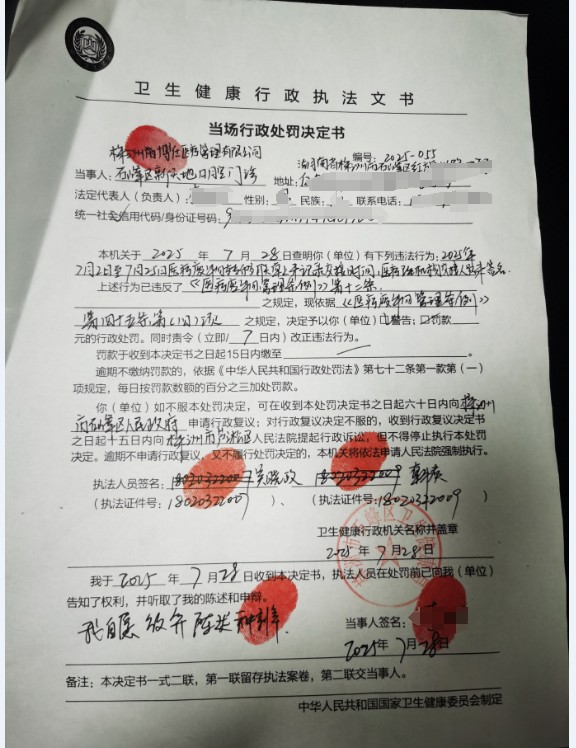 卫生健康行政执法文书
当场行政处罚决定书
株洲 博仕医疗管理有限公司 编号：2025-055
当事人：石峰区新天地口腔门诊 地址：
法定代表人（负责人）： 性别： 民族： 联系电话：
统一社会信用代码/身份证号码：9
本机关于 2025 年 7 月 28 日查明你（单位）有下列违法行为：2025年
7月2日至7月25日医疗废物 未记录交接时间，
上述行为已违反了《医疗废物管理条例》第十二条
之规定，现依据《医疗废物管理条例》
第四十五条第（ ）项 之规定，决定予以你（单位）警告；□罚款
元的行政处罚。同时责令（立即/ 7 日内）改正违法行为。
罚款于收到本决定书之日起15日内缴至
逾期不缴纳罚款的，依据《中华人民共和国行政处罚法》第七十二条第一款第（一）
项规定，每日按罚款数额的百分之三加处罚款。
你（单位）如不服本处罚决定，可在收到本处罚决定书之日起六十日内向株洲
市石峰区人民政府 申请行政复议；对行政复议决定不服的，收到行政复议决定书
之日起十五日内向株洲市芦淞区人民法院提起行政诉讼，但不得停止执行本处罚
决定。逾期不申请行政复议，又不履行处罚决定的，本机关将依法申请人民法院强制执行。
执法人员签名：
（执法证件号：18020322009）、 （执法证件号：18020322009）
卫生健康行政机关名称并盖章
2025 年 7 月 28 日
我于 2025 年 7 月 28 日收到本决定书，执法人员在处罚前已向我（单位）
告知了权利，并听取了我的陈述和申辩。
我自愿放弃陈述
当事人签名：
2025年 7月28日
备注：本决定书一式二联，第一联留存执法案卷，第二联交当事人。
中华人民共和国国家卫生健康委员会制定